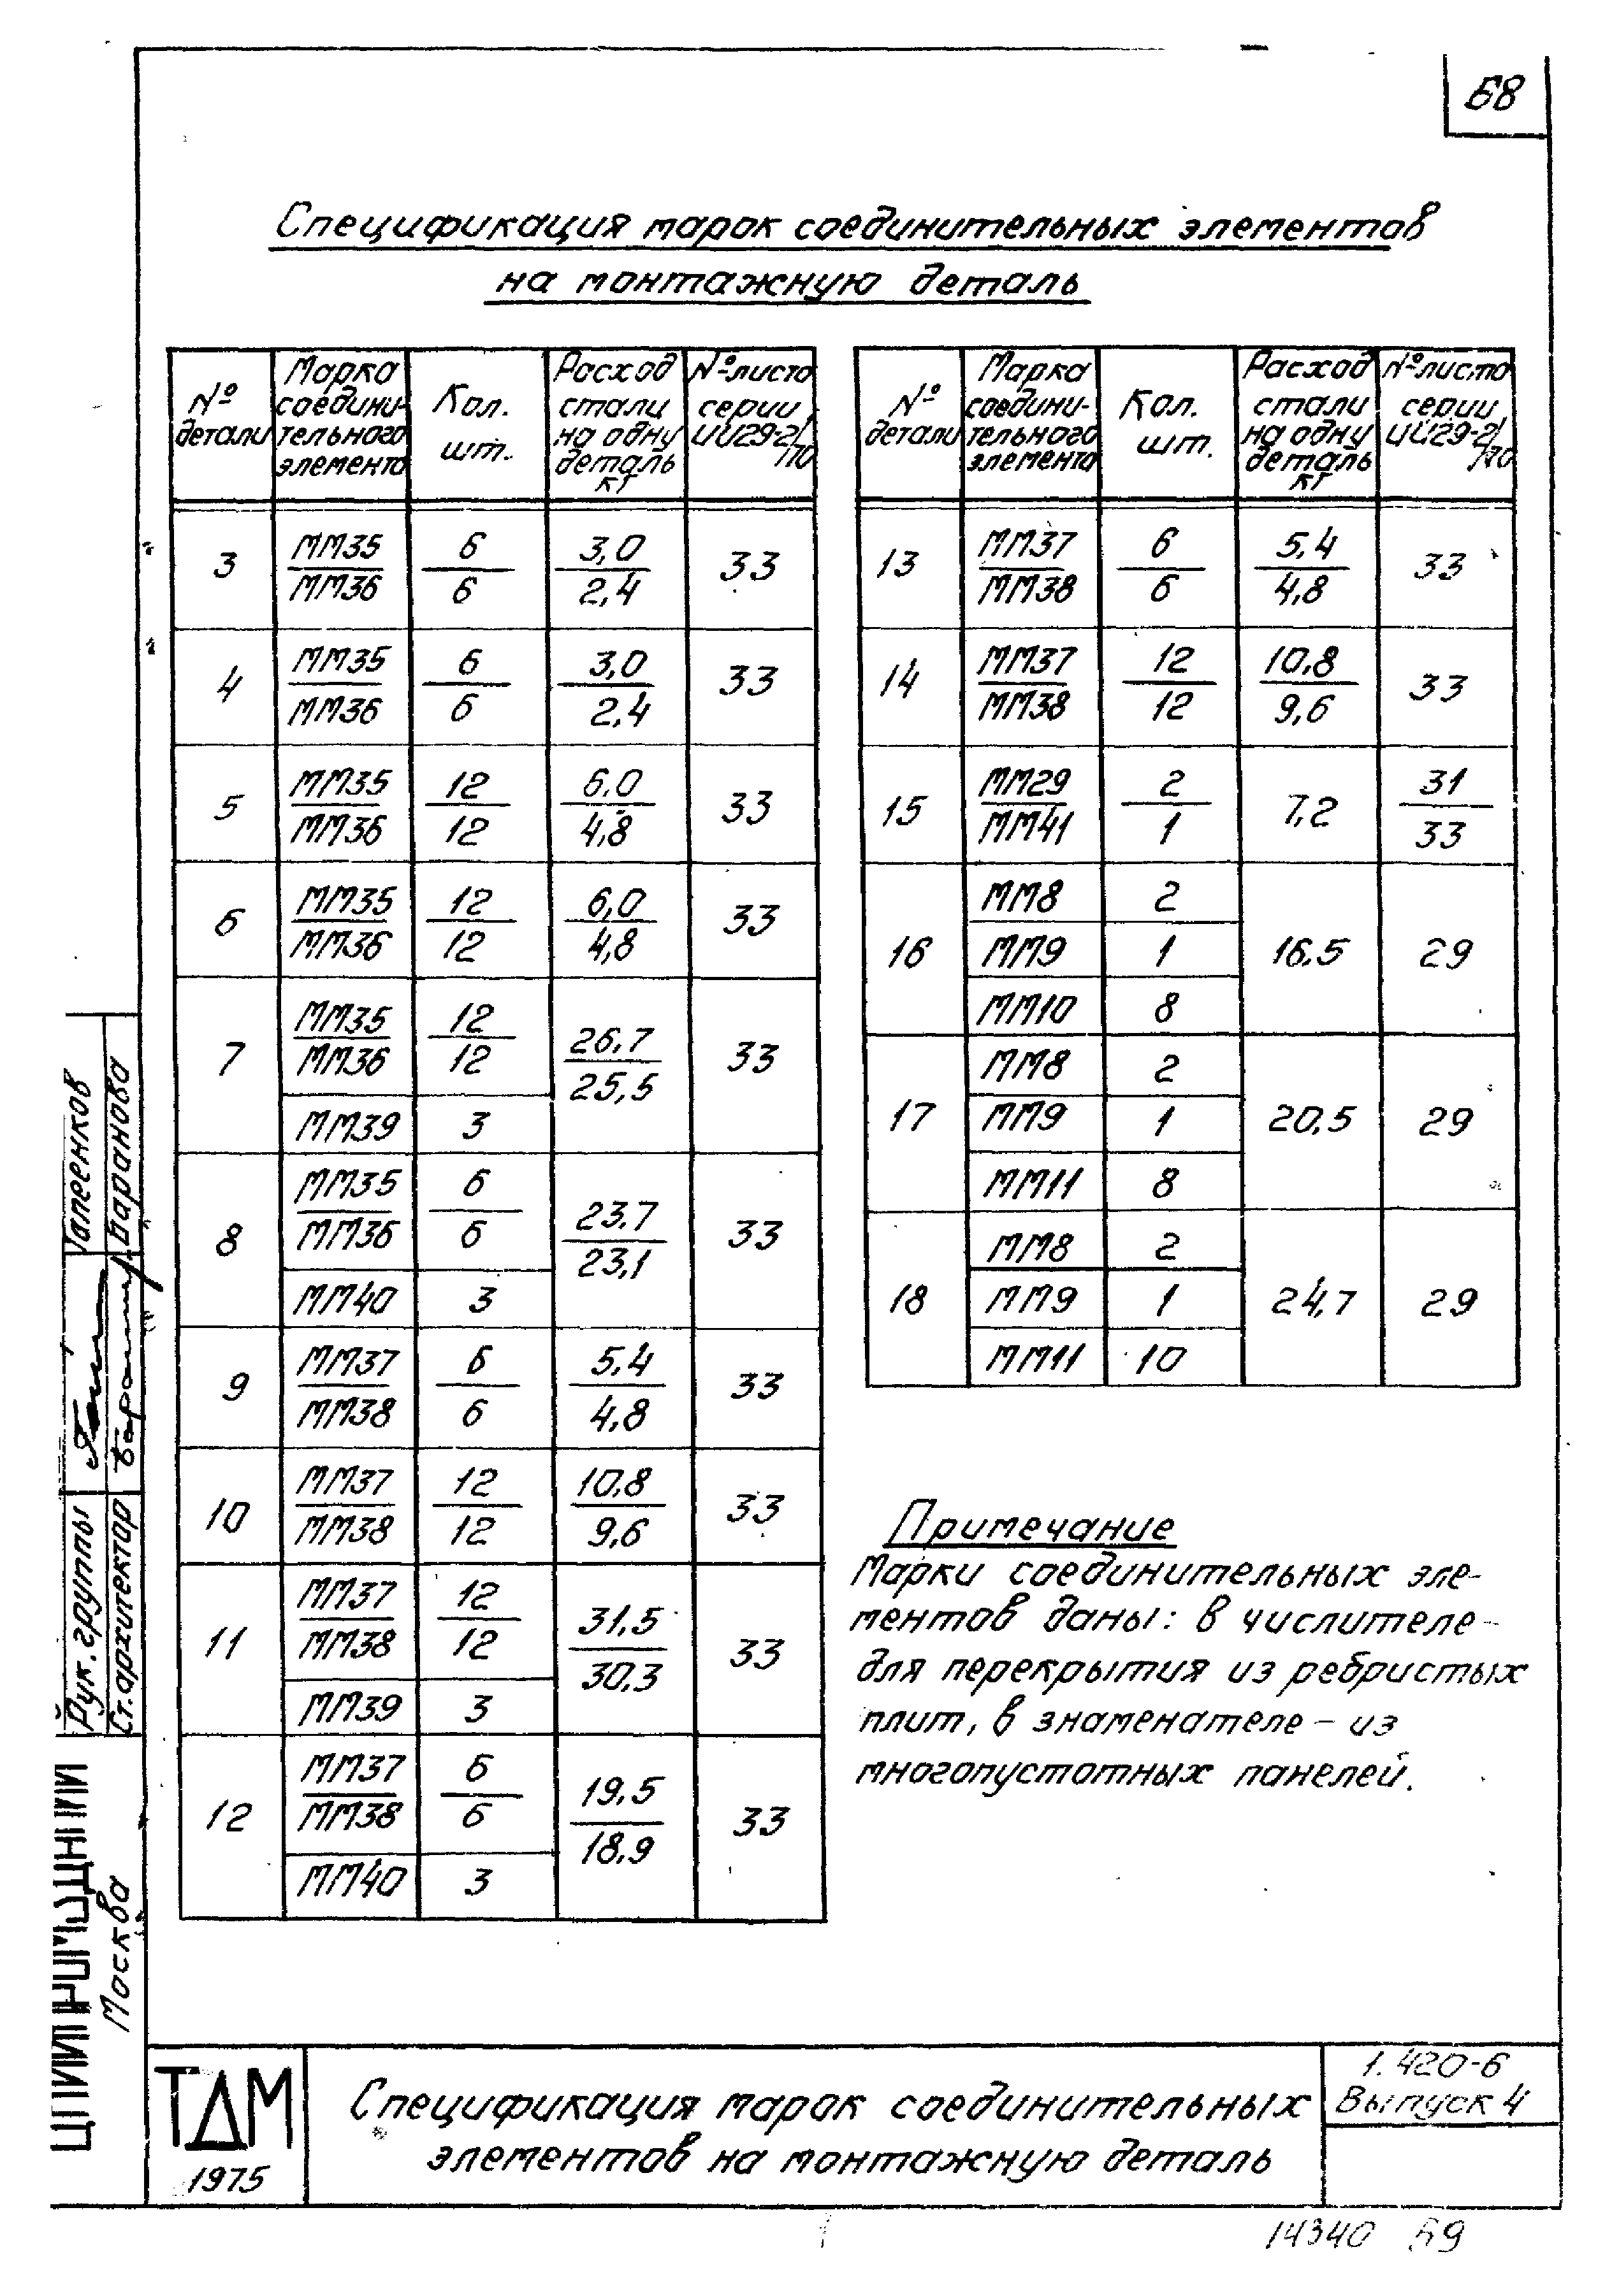 68
Спецификация марок соединительных элементов
на монтажную деталь
№ детали | Марка соедини-тельного элемента | Кол. шт. | Расход стали на одну деталь кг | № листа серии ИИ29-2/70
3 | ММ35/ММ36 | 6/6 | 3,0/2,4 | 33
4 | ММ35/ММ36 | 6/6 | 3,0/2,4 | 33
5 | ММ35/ММ36 | 12/12 | 6,0/4,8 | 33
6 | ММ35/ММ36 | 12/12 | 6,0/4,8 | 33
7 | ММ35/ММ36 | 12/12 | 26,7/25,5 | 33
ММ39 | 3
8 | ММ35/ММ36 | 6/6 | 23,7/23,1 | 33
ММ40 | 3
9 | ММ37/ММ38 | 6/6 | 5,4/4,8 | 33
10 | ММ37/ММ38 | 12/12 | 10,8/9,6 | 33
11 | ММ37/ММ38 | 12/12 | 31,5/30,3 | 33
ММ39 | 3
12 | ММ37/ММ38 | 6/6 | 19,5/18,9 | 33
ММ40 | 3
№ детали | Марка соедини-тельного элемента | Кол. шт. | Расход стали на одну деталь кг | № листа серии ИИ29-2/70
13 | ММ37/ММ38 | 6/6 | 5,4/4,8 | 33
14 | ММ37/ММ38 | 12/12 | 10,8/9,6 | 33
15 | ММ29/ММ41 | 2/1 | 7,2 | 31/33
16 | ММ8 | 2 | 16,5 | 29
ММ9 | 1
ММ10 | 8
17 | ММ8 | 2 | 20,5 | 29
ММ9 | 1
ММ11 | 8
18 | ММ8 | 2 | 24,7 | 29
ММ9 | 1
ММ11 | 10
Примечание
Марки соединительных эле-
ментов даны: в числителе-
для перекрытия из ребристых
плит, в знаменателе - из
многопустотных панелей.
Рук. группы
Галеенков
Ст. архитектор
Баранова
Москва
ТДМ
1975
Спецификация марок соединительных
элементов на монтажную деталь
1.420-6
Выпуск 4
14340 69